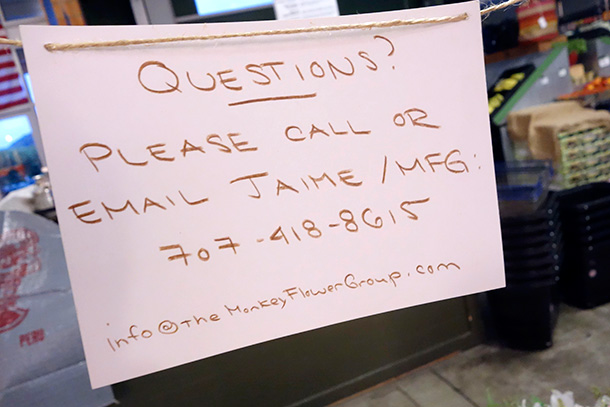 QUESTIONS?
PLEASE CALL OR
EMAIL JAIME / MFG:
707-418-8615
info@theMonkeyFlowerGroup.com
PERU